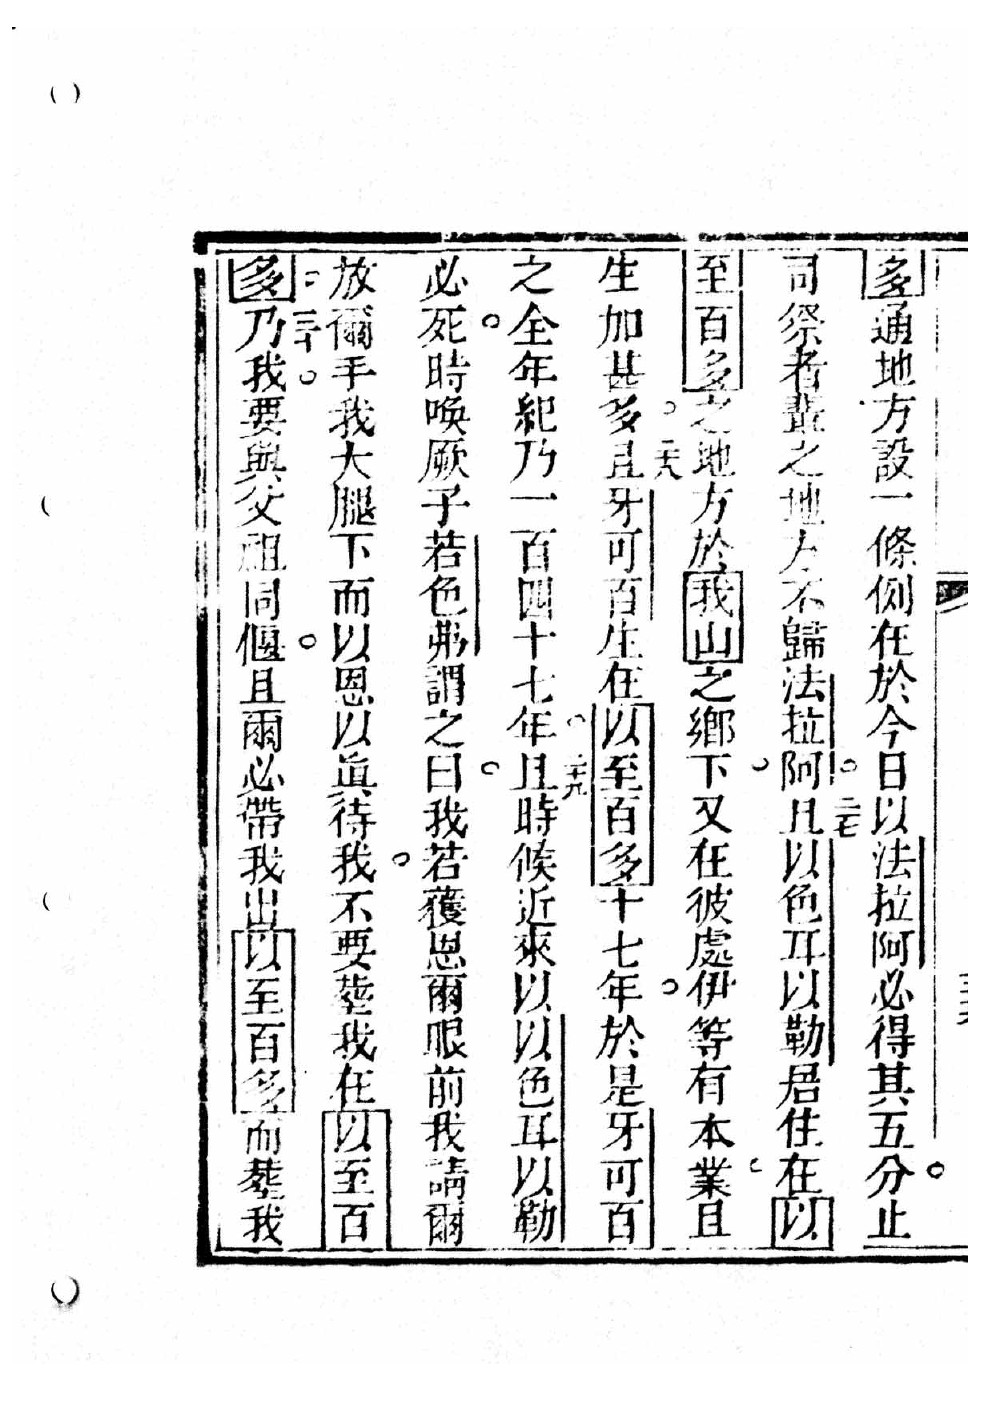 多通地方設一條例在於今日以法拉阿必得其五分止
司祭者輩之地方不歸法拉阿二七且以色耳以勒居住在以
至百多之地方於我山之鄉下又在彼處伊等有本業且
生加甚多且二十八牙可百生在以至百多十七年於是牙可百
之全年紀乃一百四十七年二十九且時候近來以以色耳以勒
必死時喚厥子若色弗謂之曰我若獲恩爾眼前我請爾
放爾手我大腿下而以恩以眞待我不要塟我在以至百
多三十乃我要與父祖同偃且爾必帶我出以至百多而塟我